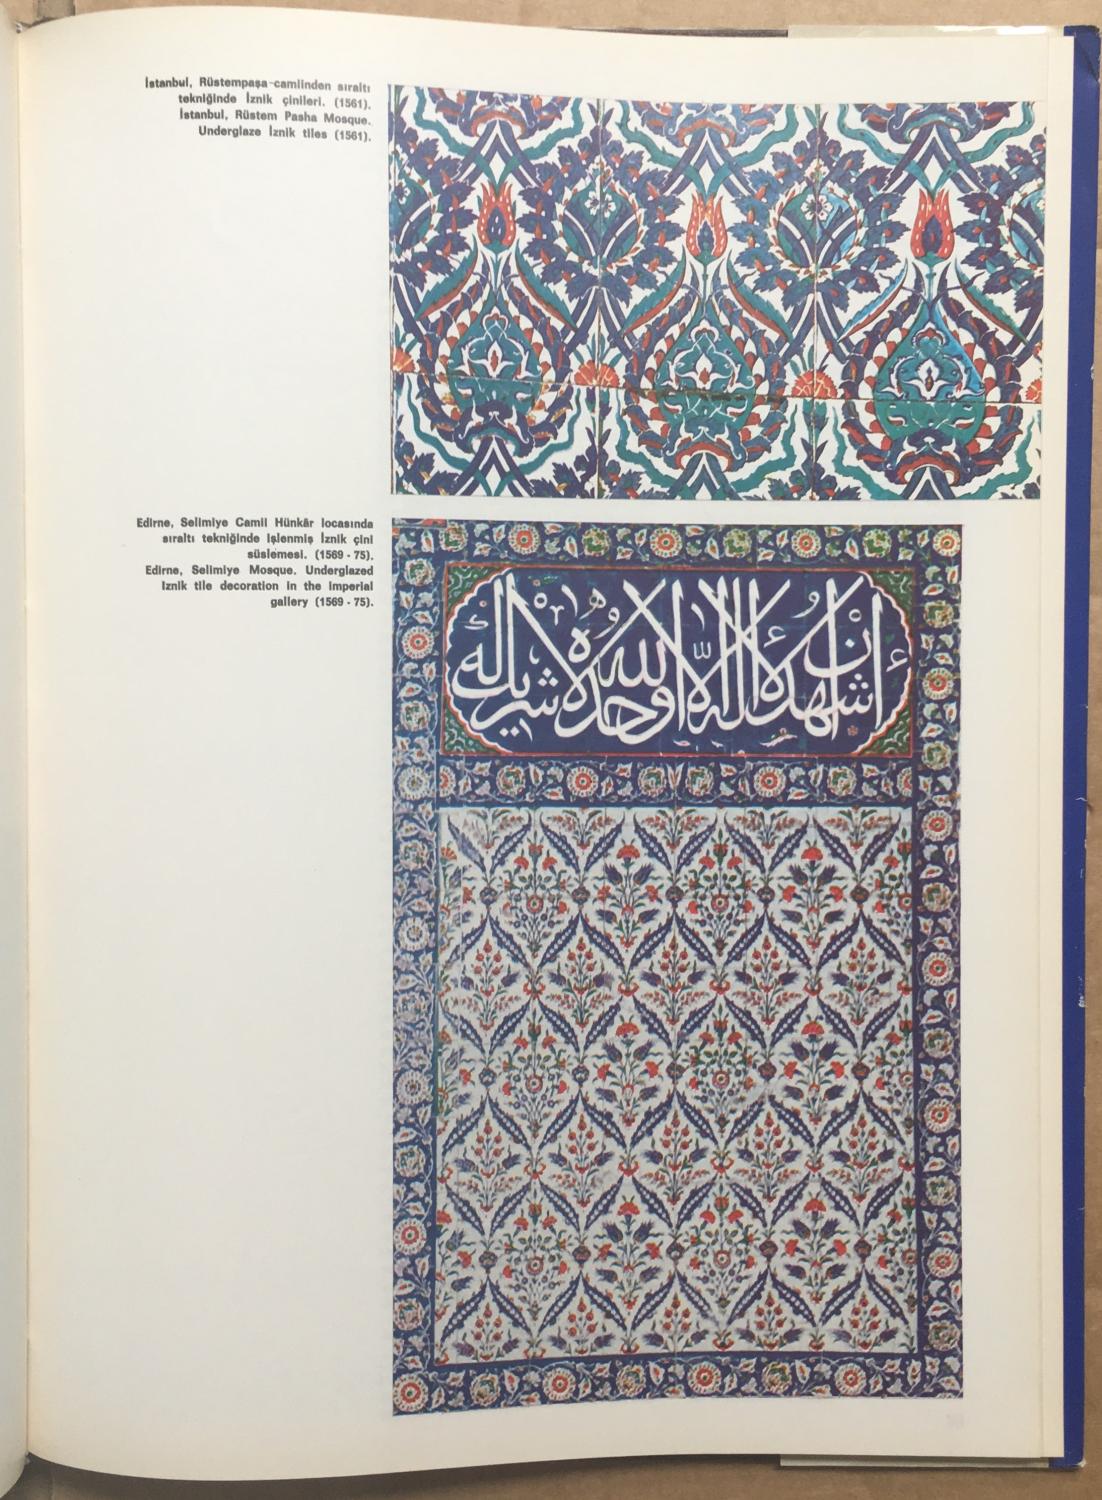 İstanbul, Rüstempaşa-camiinden sıraltı
tekniğinde İznik çinileri. (1561).
İstanbul, Rüstem Pasha Mosque.
Underglaze İznik tiles (1561).
Edirne, Selimiye Camii Hünkâr locasında
sıraltı tekniğinde işlenmiş İznik çini
süslemesi. (1569 - 75).
Edirne, Selimiye Mosque. Underglazed
Iznik tile decoration in the imperial
gallery (1569 - 75).
أشهد أن لا إله إلا الله وحده لا شريك له